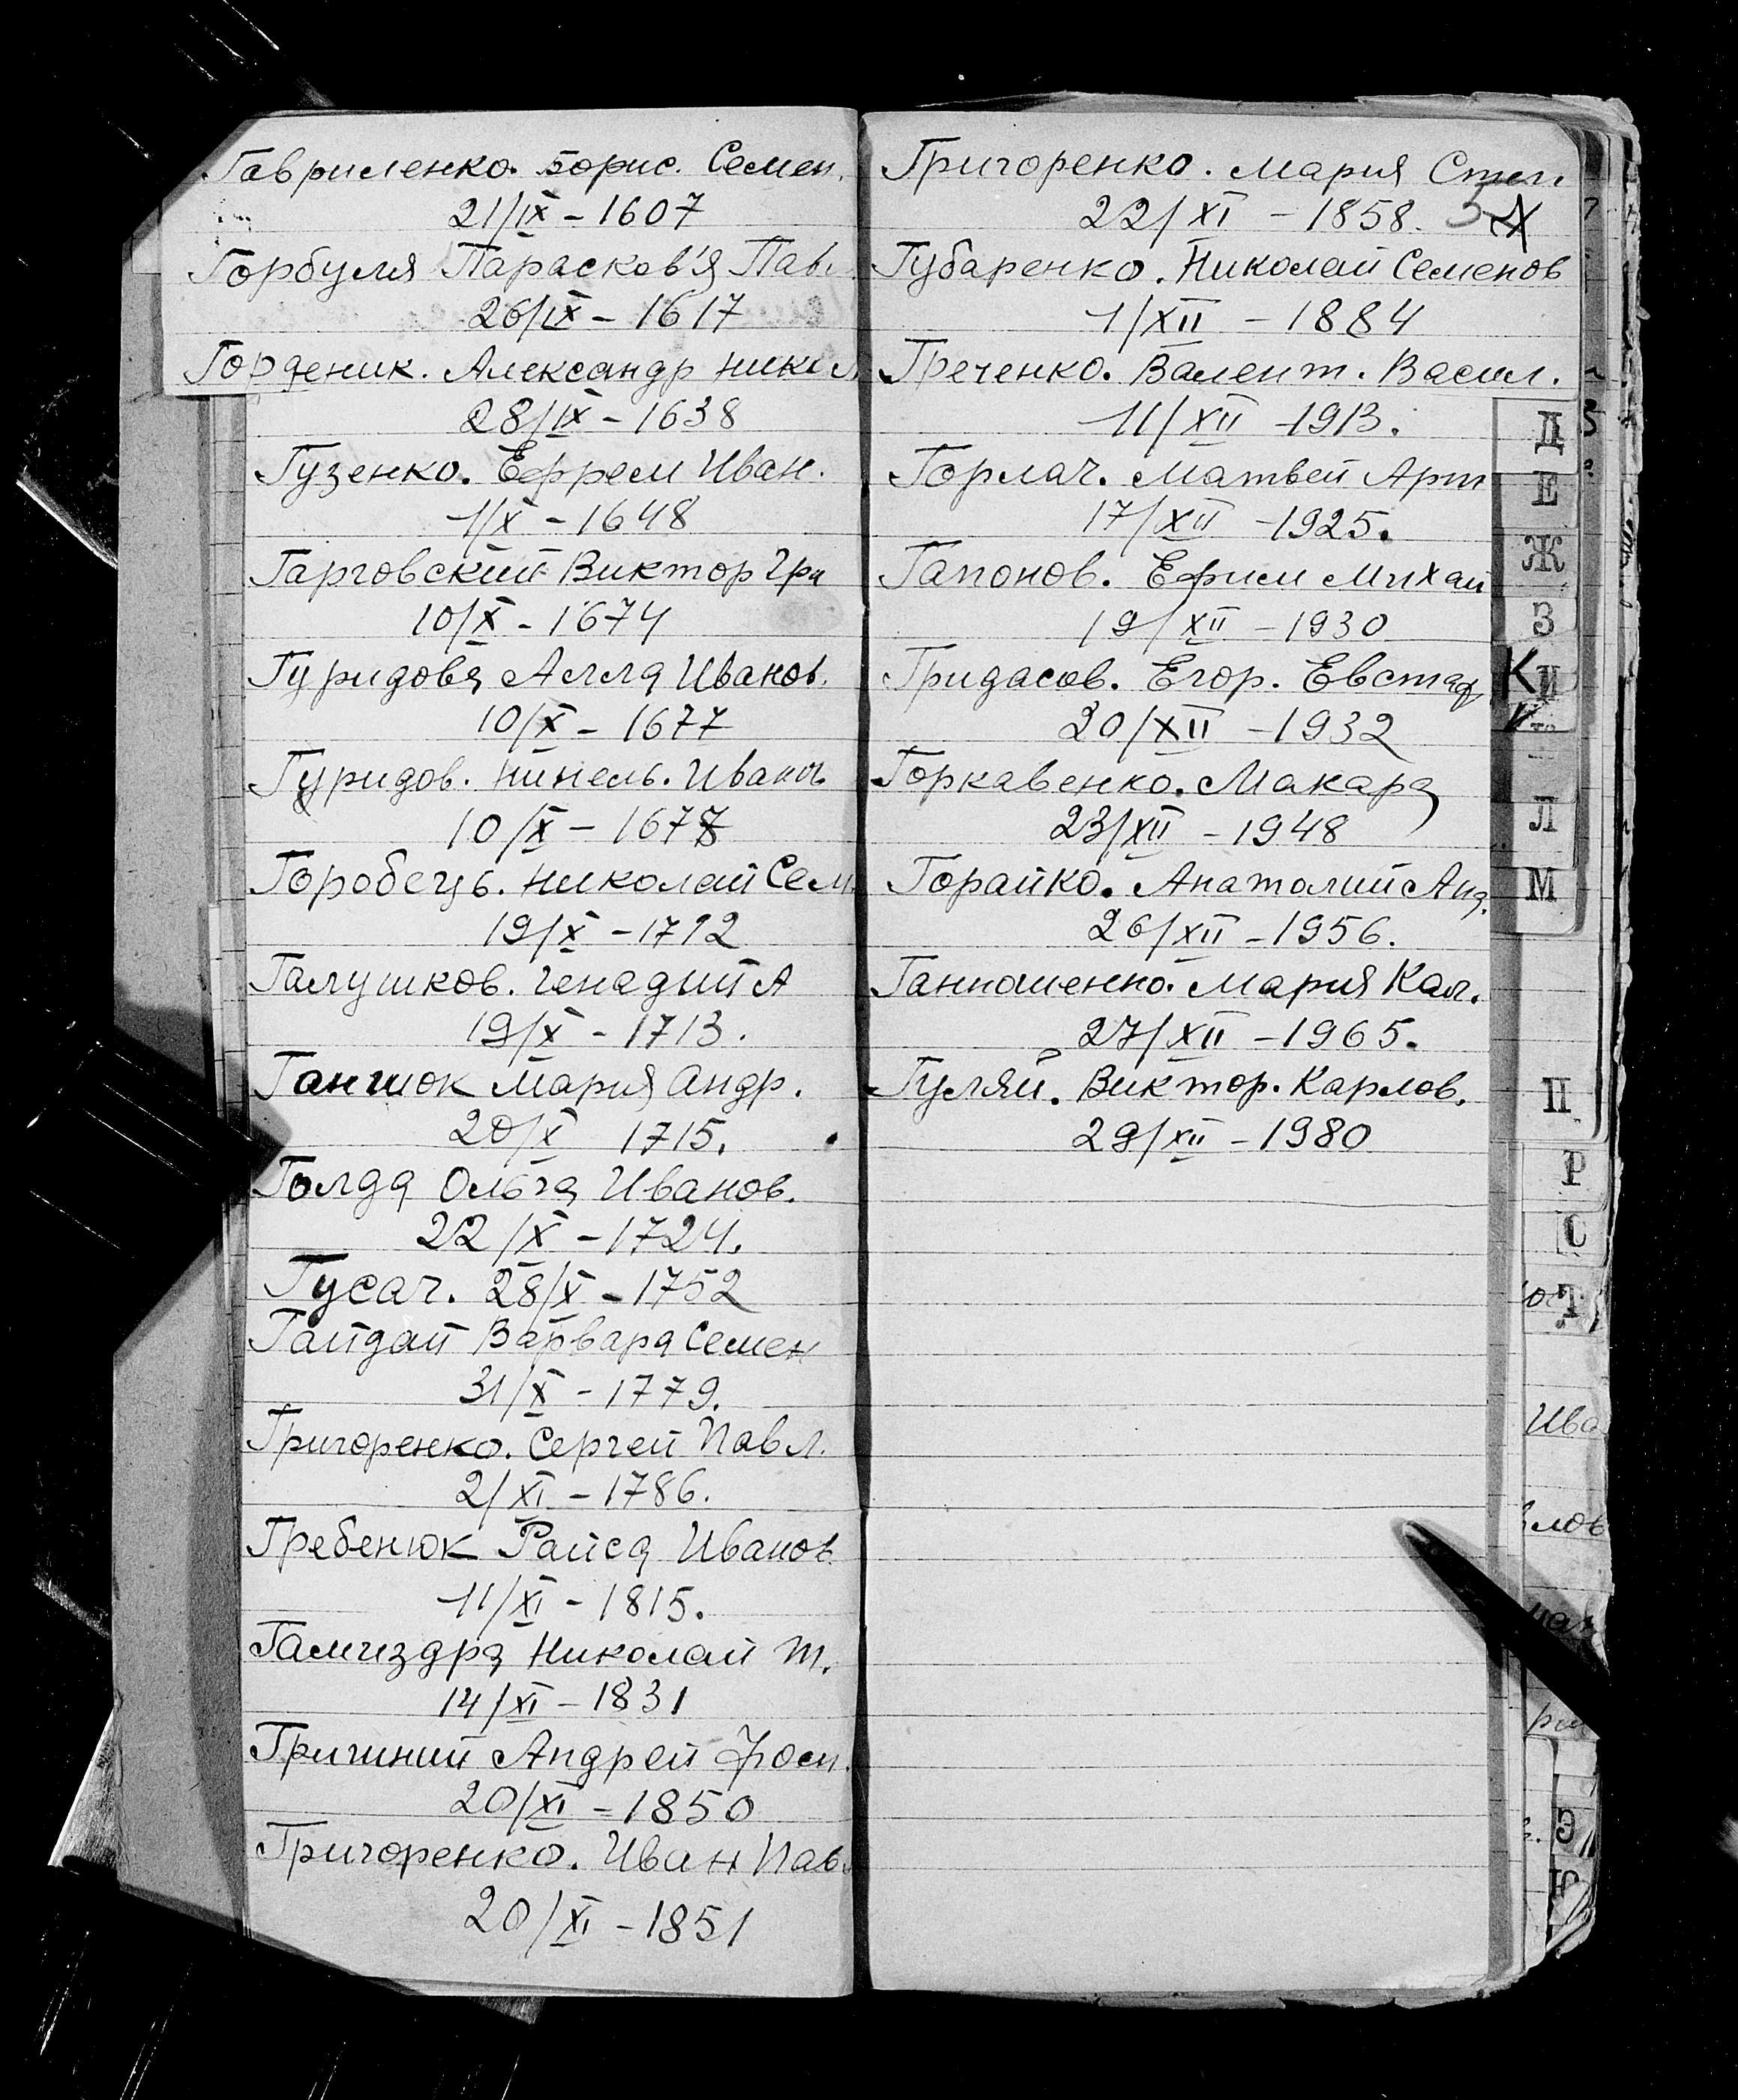 Гавриленко. Борис. Семен.
21/IX - 1607
Горбуля Парасков'я Пав.
26/IX - 1617
Горденик. Александр Никол
28/IX - 1638
Гузенко. Ефрем Иван.
1/X - 1648
Гарговский Виктор Гри
10/X - 1674
Гуридова Алла Иванов.
10/X - 1677
Гуридов. Нинель. Иванов
10/X - 1678
Горобець. Николай Сем.
19/X - 1712
Галушков. Генадий А
19/X - 1713.
Ганшюк Мария Андр.
20/X 1715.
Голда Ольга Иванов.
22/X - 1724.
Гусач. 28/X - 1752
Гайдай Варвара Семен
31/X - 1779.
Григоренко. Сергей Павл.
2/XI - 1786.
Гребенюк Раиса Иванов.
11/XI - 1815.
Гамиздра Николай Т.
14/XI - 1831
Гришний Андрей
20/XI - 1850
Григоренко. Иван Пав.
20/XI - 1851
Григоренко. Мария Степ.
22/XI - 1858.
Губаренко. Николай Семенов
1/XII - 1884
Греченко. Валент. Васил.
11/XII - 1913.
Горлач. Матвей Арт
17/XII - 1925.
Гапонов. Ефим Михай
19/XII - 1930
Гридасов. Егор. Евстаф
20/XII - 1932
Горкавенко. Макара
23/XII - 1948
Горайко. Анатолий Анд.
26/XII - 1956.
Мария Кал.
27/XII - 1965.
Гуляй. Виктор. Карлов.
29/XII - 1980
Д
Е
Ж
З
К И
Л
М
П
Р
С
Т
Ива
Э
Ю